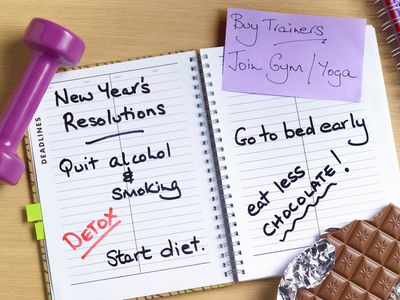 New Year's
Resolutions
DEADLINES
Quit alcohol
&
smoking
DETOX
Start diet.
Buy Trainers
Join Gym / Yoga
Go to bed early
eat less
CHOCOLATE!